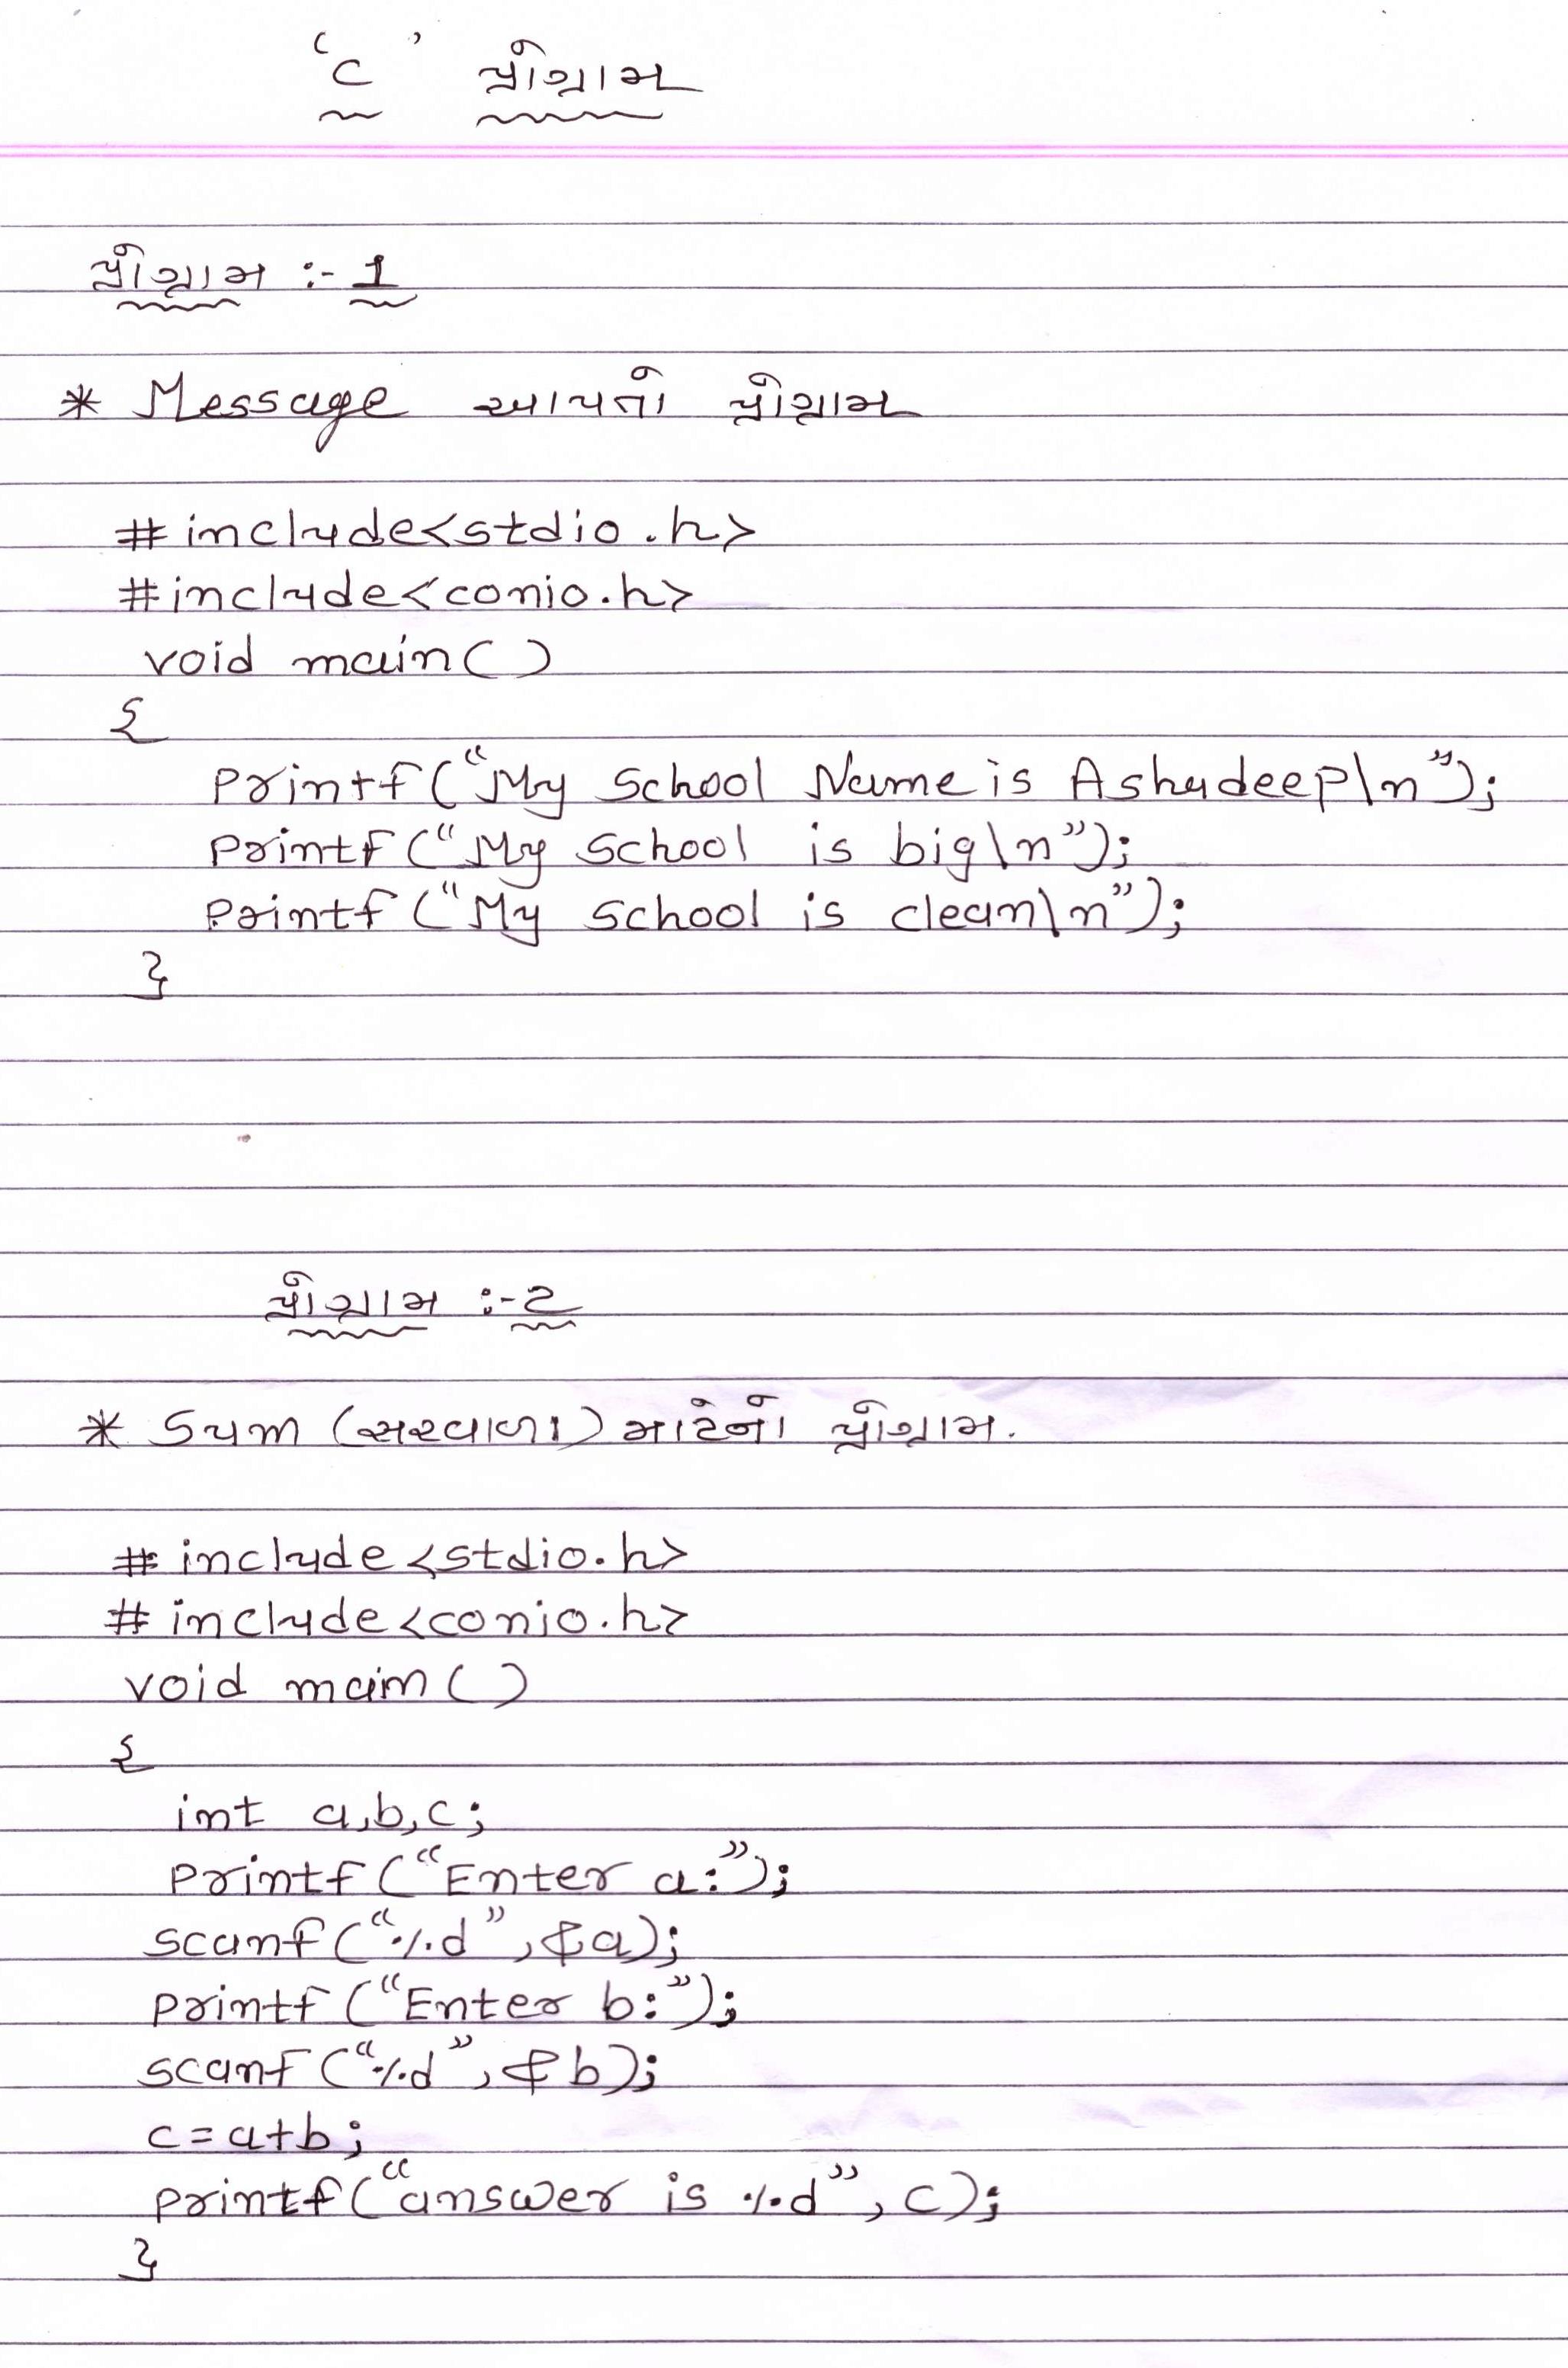 ‘C’ પ્રોગ્રામ
પ્રોગ્રામ :- 1
* Message આપતો પ્રોગ્રામ
# include<stdio.h>
#include<conio.h>
void main()
{
printf(“My School Name is Ashadeep\n”);
printf(“My School is big\n”);
printf(“My School is clean\n”);
}
પ્રોગ્રામ :- 2
* Sum (સરવાળા) માટેનો પ્રોગ્રામ.
# include<stdio.h>
# include<conio.h>
void main()
{
int a,b,c;
printf(“Enter a:”);
scanf(“%d”,&a);
printf(“Enter b:”);
scanf(“%d”,&b);
c=a+b;
printf(“answer is %d”,c);
}